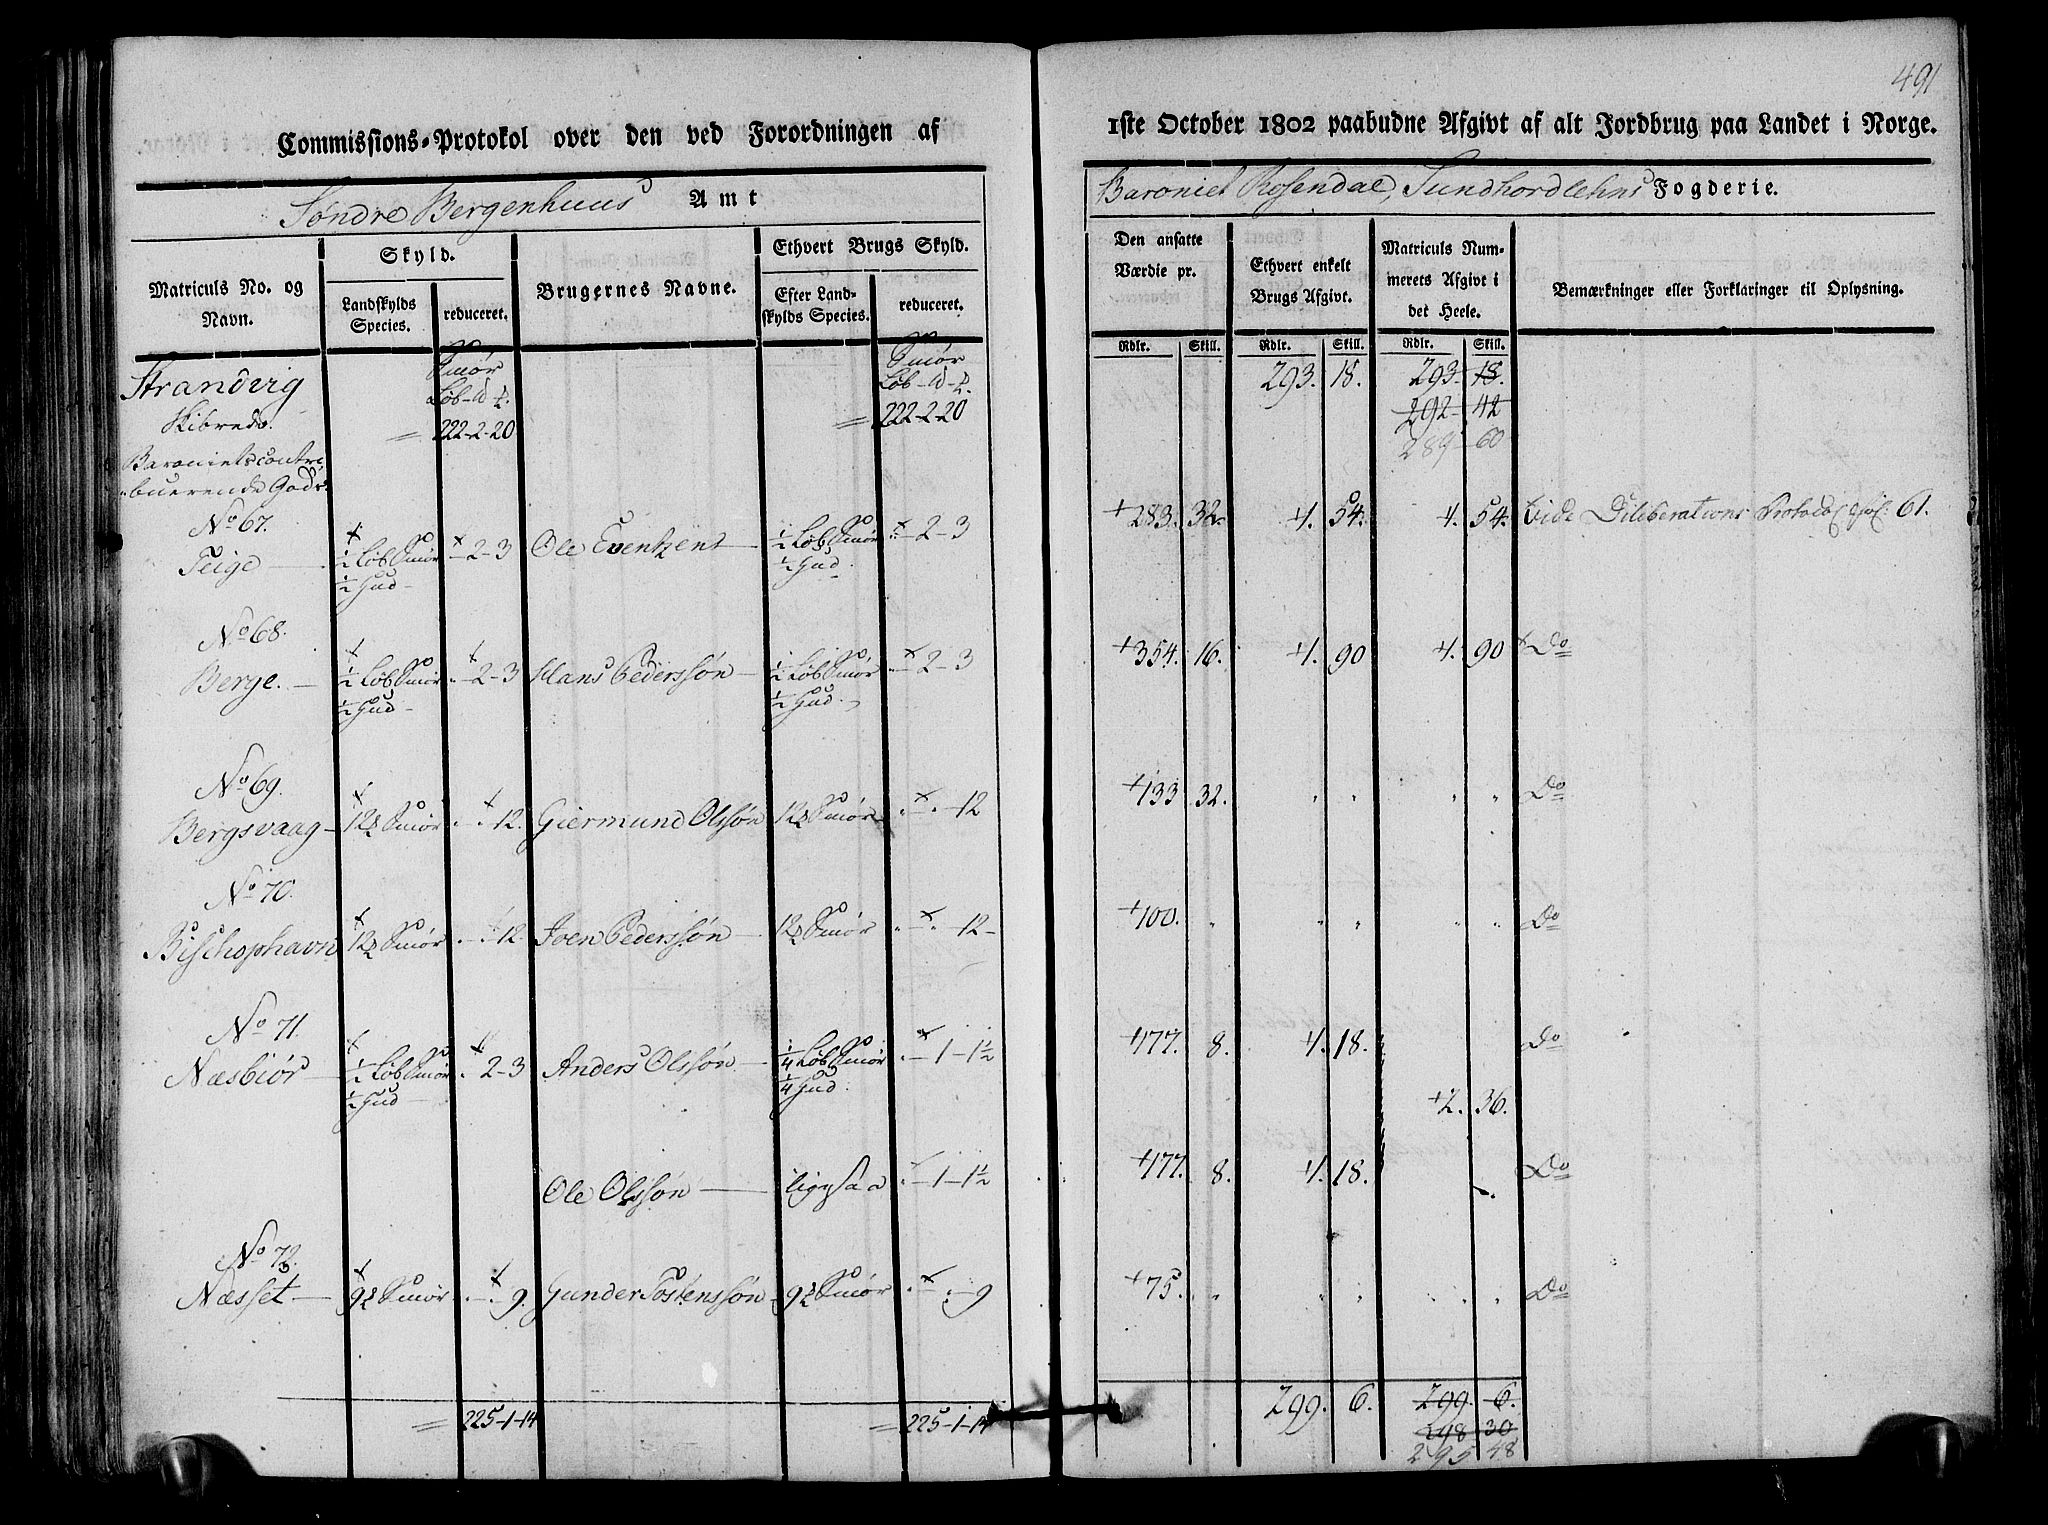 491
Commissions-Protokol over den ved Forordningen af
1ste October 1802 paabudne Afgivt af alt Jordbrug paa Landet i Norge.
Søndre Bergenhuus Amt
Baroniet Rosendal, Sundhordlehns Fogderie.
Matriculs No. og Navn.
Skyld.
Landskylds Species.
reduceret.
Brugernes Navne.
Ethvert Brugs Skyld.
Efter Landskylds Species.
reduceret.
Den ansatte Værdie pr.
Ethvert enkelt Brugs Afgivt.
Matriculs Nummerets Afgivt i det Heele.
Bemærkninger eller Forklaringer til Oplysning.
Rdlr. Skill. Rdlr. Skill. Rdlr. Skill.
Strandvig Smør Smør 293. 18. 293. 18.
Skibrede. 222-2-20 222-2-20 292- 42
289- 60
Baroniets contri-
buerende Gods.
No 67.
Teige — ½ Løb Smør - 2-3 Ole Evensens — ½ Løb Smør - 2-3 283. 32. 1. 54. 1. 54. Vide Deliberations Protocol fol. 61.
½ Hud ½ Hud
No 68.
Berge. — ½ Løb Smør - 2-3 Hans Pederssøn — ½ Løb Smør - 2-3 354. 16. 1. 90 1. 90 Do
½ Hud ½ Hud
No 69.
Bergsvaag — 12 Smør " " 12. Giermund Olssøn 12 Smør " " 12 133 32. " " " " Do
No 70.
Bischophavn 12 Smør " " 12 Joen Pederssøn — 12 Smør " " 12 100. " " " " " Do
No 71.
Næsbiør — ½ Løb Smør " 2-3 Anders Olssøn — ¼ Løb Smør " 1-1½ 177. 8. 1. 18. Do
½ Hud ¼ Hud 2. 36.
Ole Olssøn — ligesaa " 1-1½ 177. 8. 1. 18. Do
No 72.
Næsset — 9 Smør " " 9. Gunder Tostenssøn 9 Smør " " 9 75. " " " " " Do
225-1-14 225-1-14 299. 6. 299. 6.
298 30
295 48